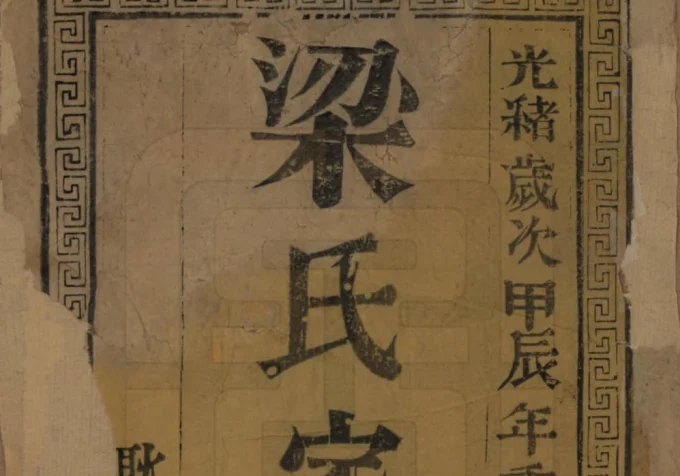 光緒歲次甲辰年
梁氏